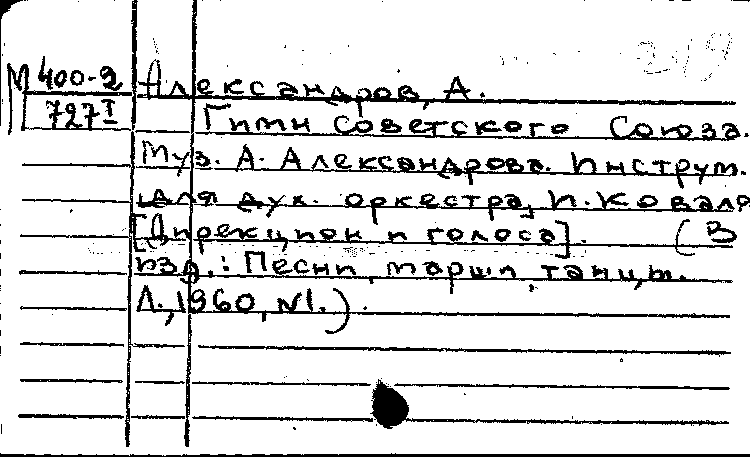 М 400-2 Александров, А.
727 I Гимн Советского Союза.
Муз. А. Александрова. Инструм.
для дух. оркестра И. Коваля
[Дирекцион и голоса]. (В
изд.: Песни, марши, танцы.
Л., 1960, №1.).